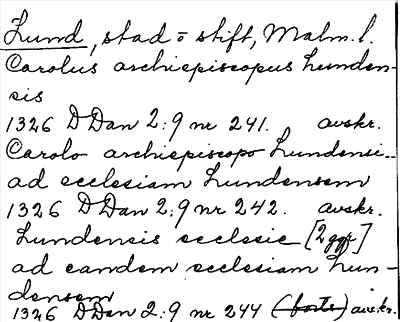 Lund, stad o stift, Malm. l.
Carolus archiepiscopus Lunden-
sis
1326 DDan 2:9 nr 241. avskr.
Carolo archiepiscopo Lundensi..
ad ecclesiam Lundensem
1326 DDan 2:9 nr 242. avskr.
Lundensis ecclesie [2 ggr]
ad eandem ecclesiam Lun-
densem
1326 DDan 2:9 nr 244 avskr.